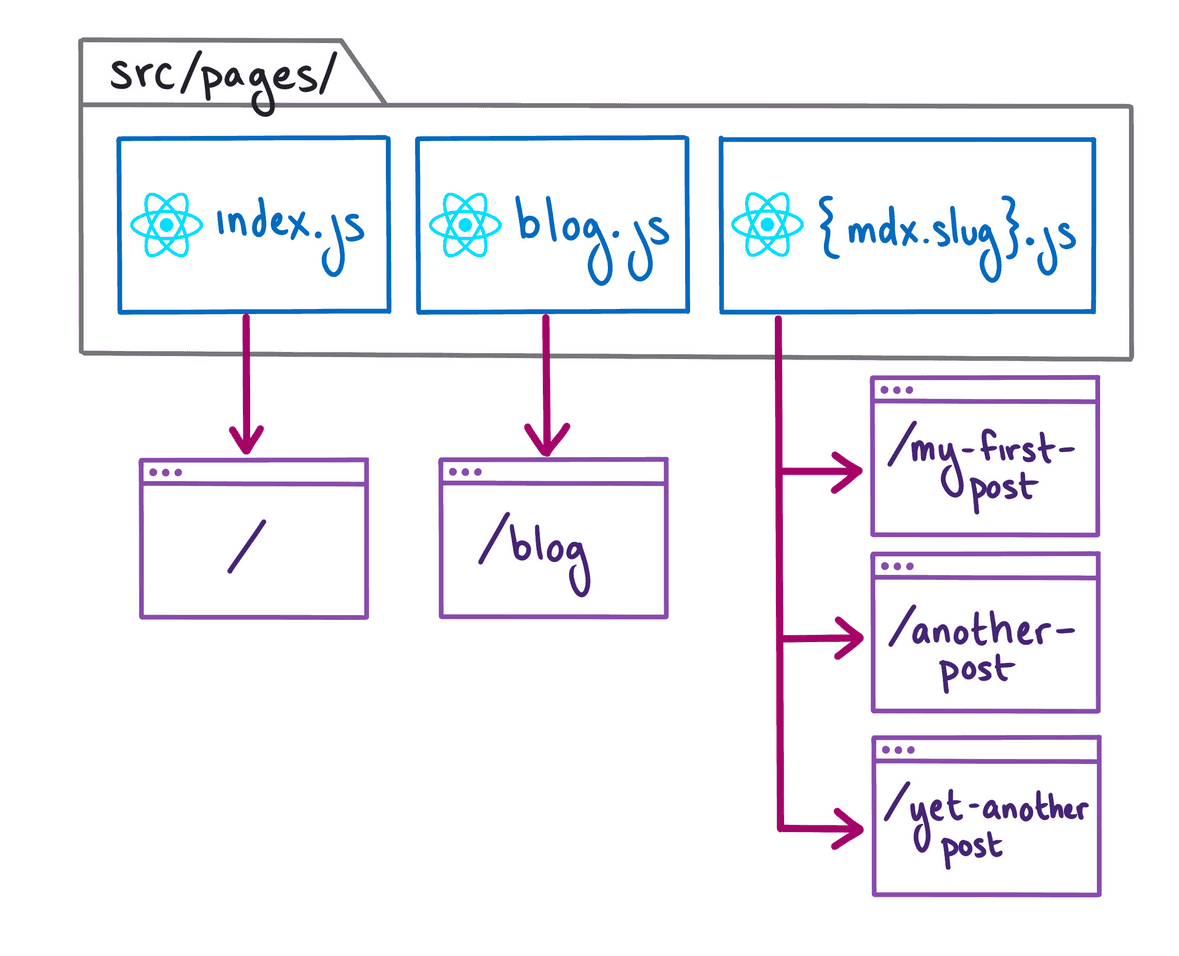 src/pages/
index.js
blog.js
{mdx.slug}.js
/
/blog
/my-first-
post
/another-
post
/yet-another
post